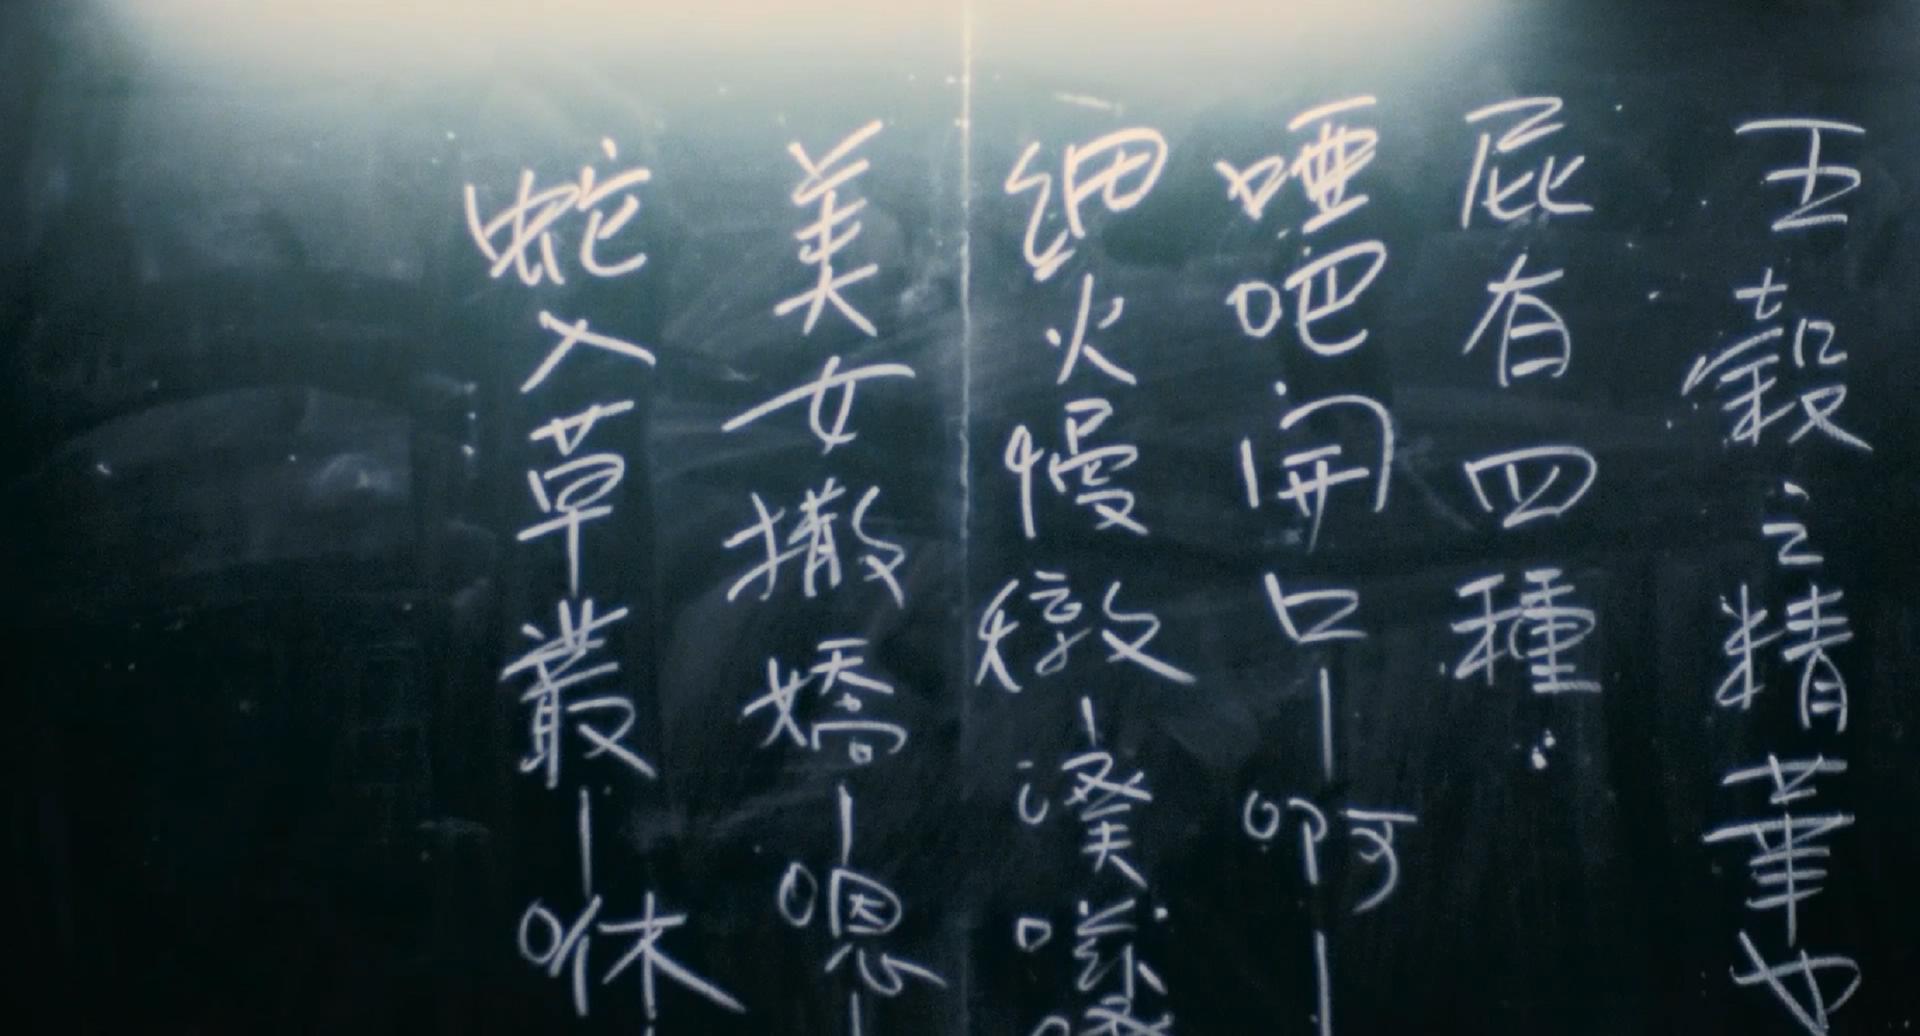 五穀之精華也
屁有四種：
啞吧開口－啊－
細火慢燉－
美女撒嬌－嗯－
蛇入草叢－咻－